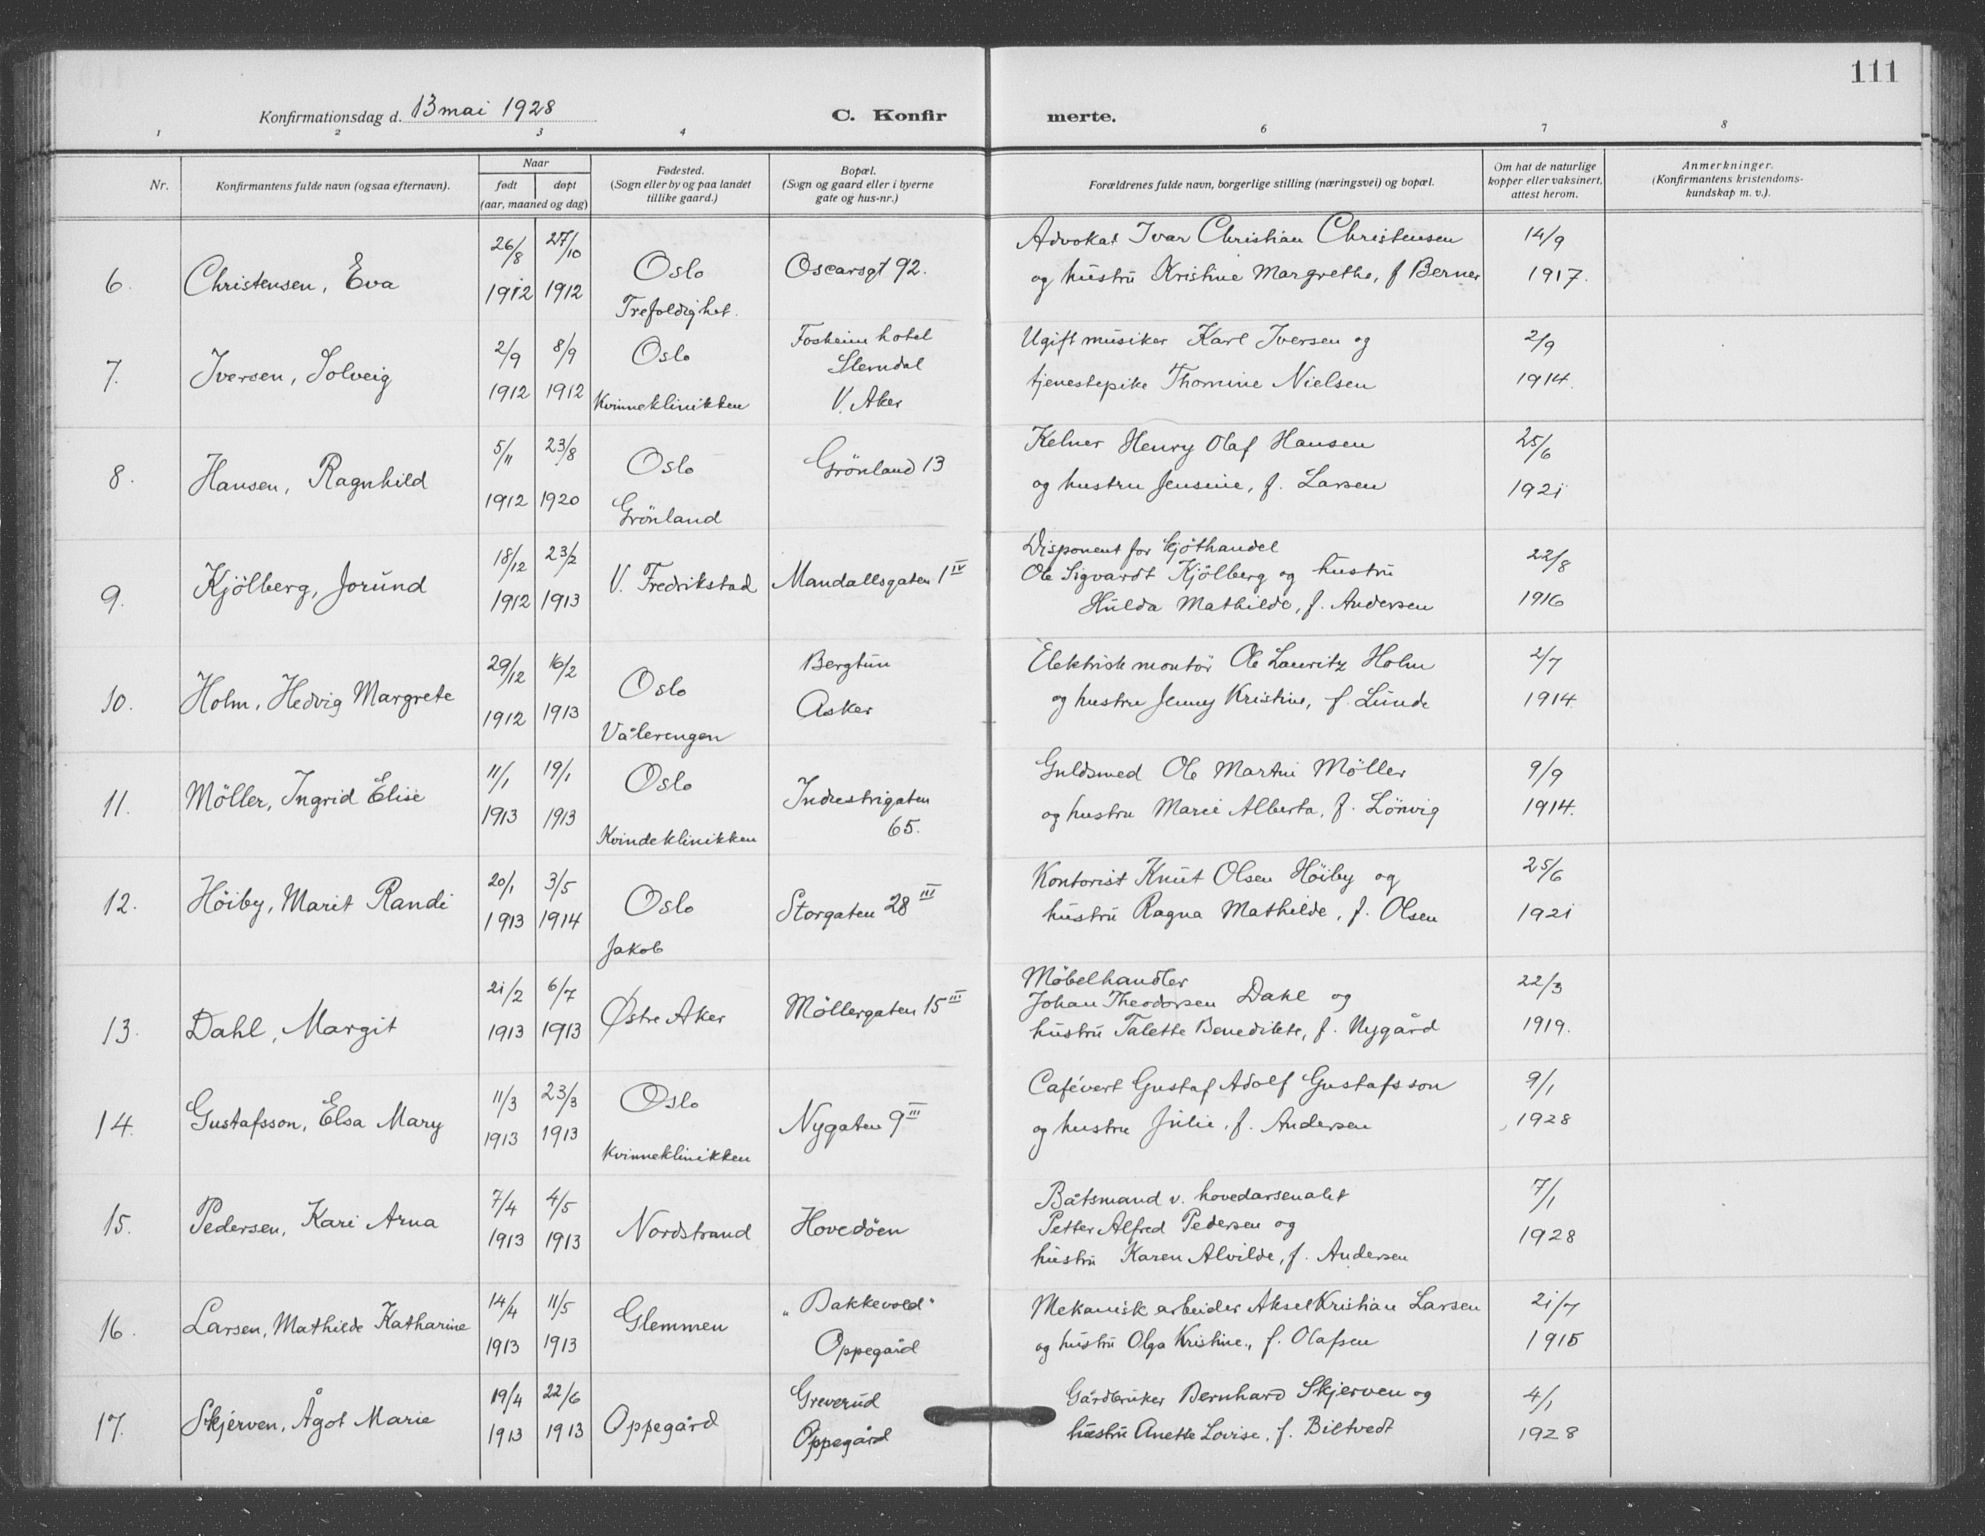 111
Konfirmationsdag d. 13 mai 1928
C. Konfir merte.
1 2 3 4 6 7 8
Nr.
Konfirmantens fulde navn (ogsaa efternavn).
Naar
født døpt
(aar, maaned og dag)
Fødested.
(Sogn eller by og paa landet
tillike gaard.)
Bopæl.
(Sogn og gaard eller i byerne
gate og hus-nr.)
Forældrenes fulde navn, borgerlige stilling (næringsvei) og bopæl.
Om hat de naturlige
kopper eller vaksinert,
attest herom.
Anmerkninger.
(Konfirmantens kristendoms-
kundskap m. v.).
6. Christensen, Eva
26/8 1912
27/10 1912
Oslo
Trefoldighet.
Oscarsgt 92.
Advokat Ivar Christian Christensen
og hustru Kristine Margrethe, f Berner
14/9
1917.
7. Iversen, Solveig
2/9 1912
8/9 1912
Oslo
Kvinneklinikken
Foskeim hotel
Slemdal
V. Aker
Ugift musiker Karl Iversen og
tjenestepike Thomine Nielsen
2/9
1914.
8. Hansen, Ragnhild
5/11 1912
23/8 1920
Oslo
Grönland
Grönland 13
Kelner Henry Olaf Hansen
og hustru Jensine, f. Larsen
25/6
1921
9. Kjölberg, Jorund
18/12 1912
23/2 1913
V. Fredrikstad
Mandallsgaten 1 IV
Disponent for kjöthandel
Ole Sigvardt Kjölberg og hustru
Hulda Mathilde, f. Andersen
22/8
1916
10. Holm, Hedvig Margrete
29/12 1912
16/2 1913
Oslo
Vålerengen
Bergtun
Asker
Elektrisk montör Ole Lauritz Holm
og hustru Jenny Kristine, f. Lunde
2/7
1914
11. Möller, Ingrid Elise
11/1 1913
19/1 1913
Oslo
Kvindeklinikken
Industrigaten
65.
Guldsmed Ole Martin Möller
og hustru Marie Alberta, f. Lönvig
9/9
1914.
12. Höiby, Marit Randi
20/1 1913
3/5 1914
Oslo
Jakob
Storgaten 28 III
Kontorist Knut Olsen Höiby og
hustru Ragna Mathilde, f. Olsen
25/6
1921
13. Dahl, Margit
21/2 1913
6/7 1913
Østre Aker
Möllergaten 15 III
Möbelhandler
Johan Theodorsen Dahl og
hustru Talette Benedikte, f. Nygård
22/3
1919.
14. Gustafsson, Elsa Mary
11/3 1913
23/3 1913
Oslo
Kvinneklinikken
Nygaten 9 III
Cafévert Gustaf Adolf Gustafsson
og hustru Julie, f. Andersen
9/1
1928
15. Pedersen, Kari Arna
7/4 1913
4/5 1913
Nordstrand
Hovedöen
Båtsmand v. hovedarsenalet
Petter Alfred Pedersen og
hustru Karen Alvilde, f. Andersen
7/1
1928
16. Larsen, Mathilde Katharine
14/4 1913
11/5 1913
Glemmen
"Bakkevold"
Oppegård
Mekanisk arbeider Aksel Kristian Larsen
og hustru Olga Kristine, f. Olafsen
21/7
1915
17. Skjerven, Ågot Marie
19/4 1913
22/6 1913
Oppegård
Greverud
Oppegård
Gårdbruker Bernhard Skjerven og
hustru Anette Lovise, f. Biltvedt
4/1
1928